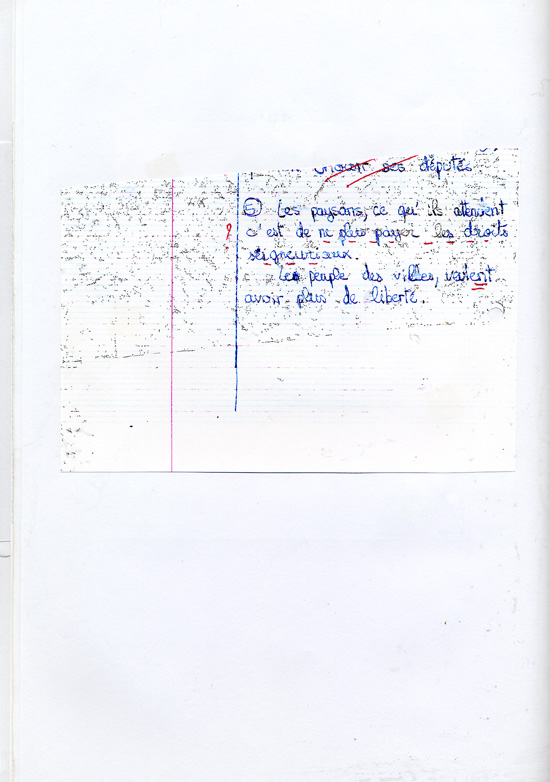 ses députés.
⑥ Les paysans, ce qu'ils atendent
c'est de ne plus payer les droits
seigneuriaux.
Les peuple des villes, veulent
avoir plus de liberté.